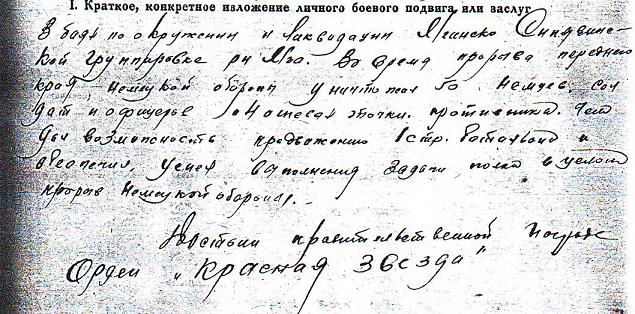 I. Краткое, конкретное изложение личного боевого подвига или заслуг
В боях по окружении и ликвидации Мгинско Синявинс-
кой группировке рн Мга. Во время прорыва переднего
края, немецкой оборон уничтожил 50. немцев. сол
дат и офицеров огневых точки. противника. Чем
дал возможность продвижению 1 стр. батальона и
обеспечил, успех выполнения задачи, полка в целом
прорыв немецкой обороны.
Достоин правительственной награде
Орден „Красная Звезда"